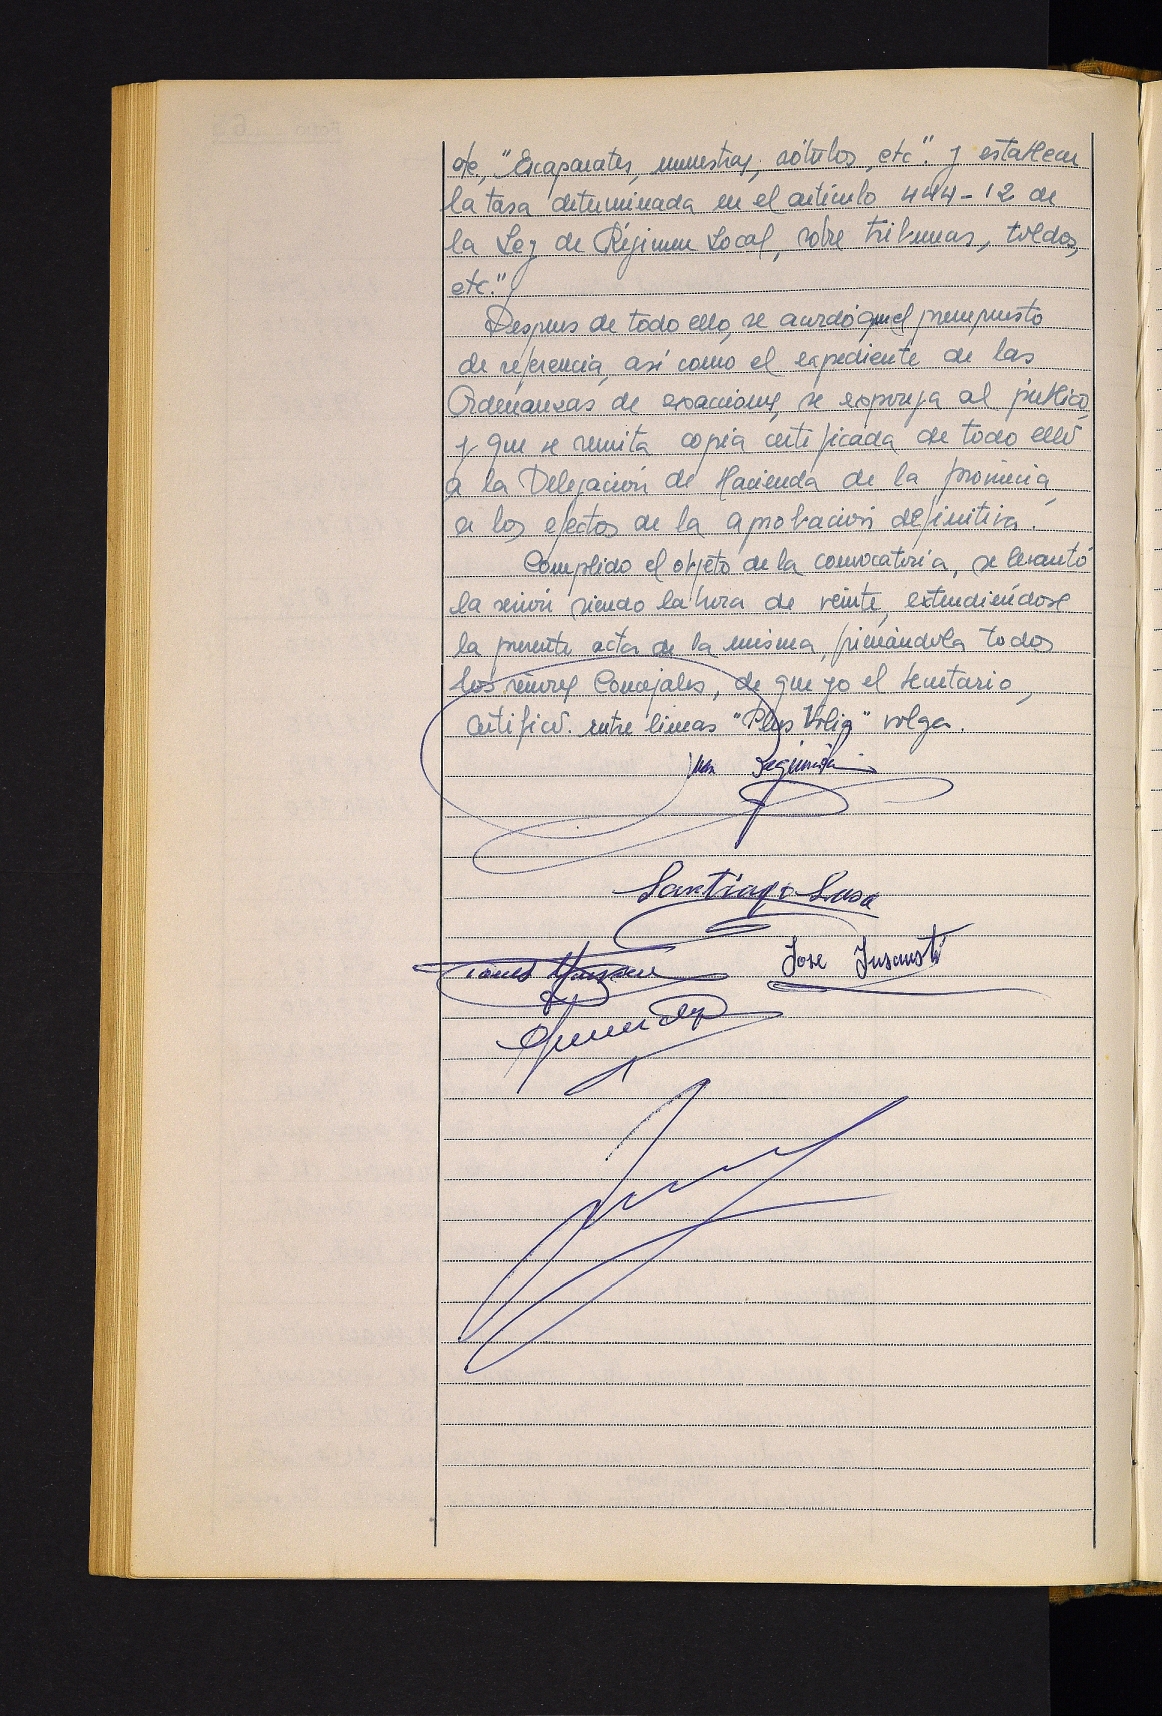 de, "Escaparates, muestras, rótulos, etc". y establecer
la tasa determinada en el artículo 444-12 de
la Ley de Régimen Local, sobre tribunas, toldos,
etc."
Despues de todo ello, se acordó que el presupuesto
de referencia, así como el expediente de las
Ordenanzas de exacciones, se exponga al público,
y que se remita copia certificada de todo ello
a la Delegación de Hacienda de la provincia,
a los efectos de la aprobación definitiva.
Complido el objeto de la convocatoria, se levantó
la sesión siendo la hora de veinte, extendiéndose
la presente acta de la misma, firmándola todos
los señores Concejales, de que yo el Secretario,
certifico. entre lineas "Plus Valia" valga.
Santiago Susa
Jose Insausti